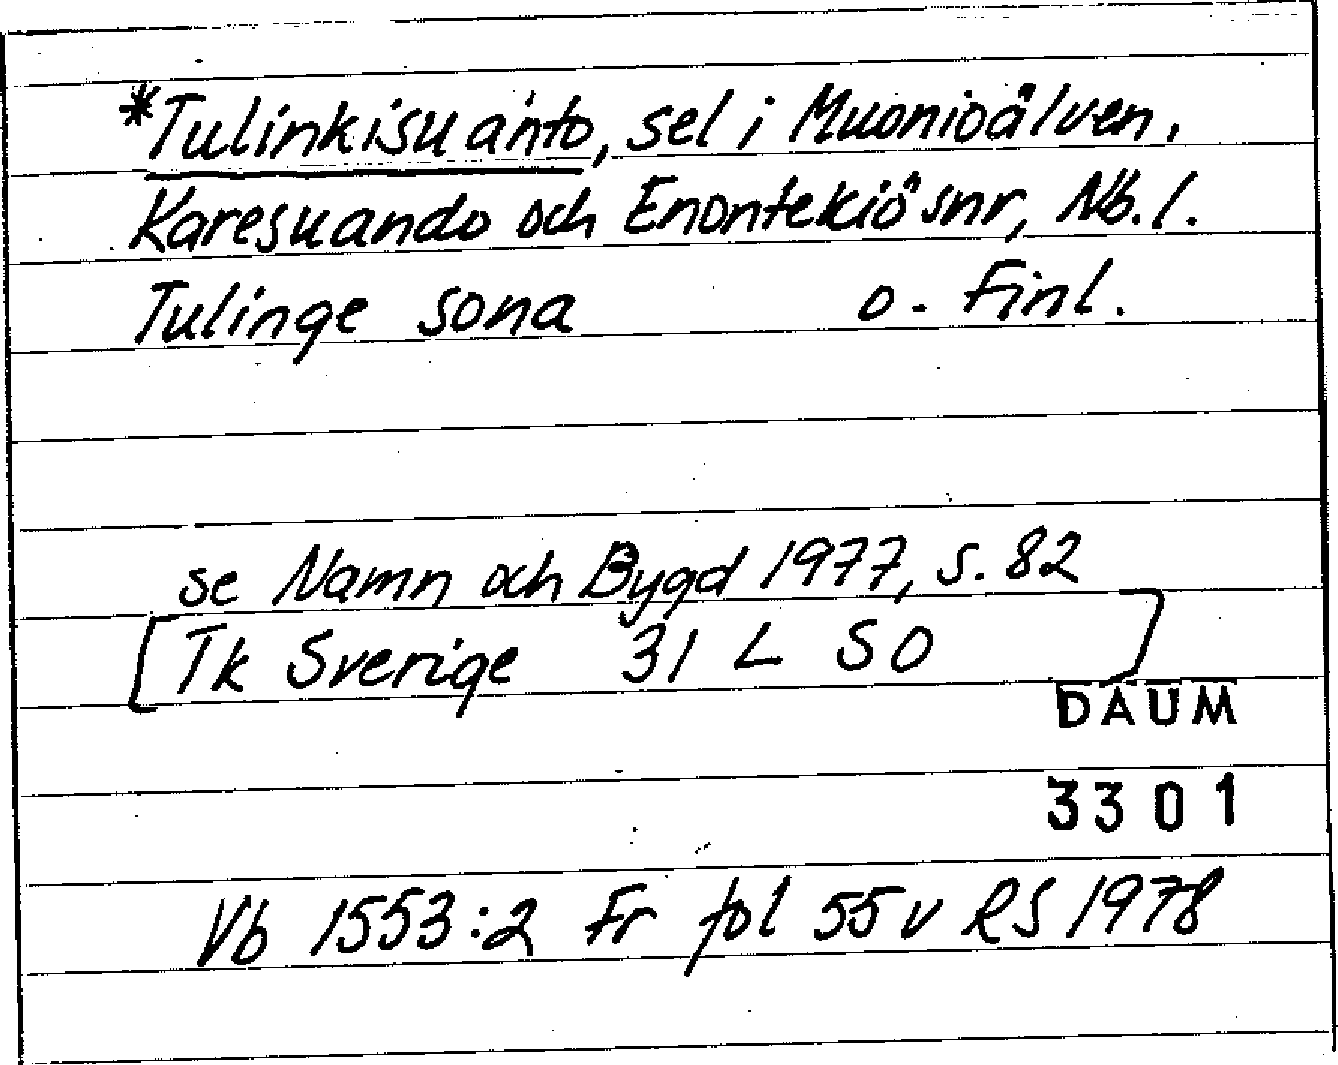 *Tulinkisuanto, sel i Muonioälven,
Karesuando och Enontekiö snr, Nb. l.
Tulinge sona o. Finl.
se Namn och Bygd 1977, s. 82
[Tk Sverige 31 L SO]
DAUM
3301
Vb 1553:2 Fr fol 55 v RS 1978